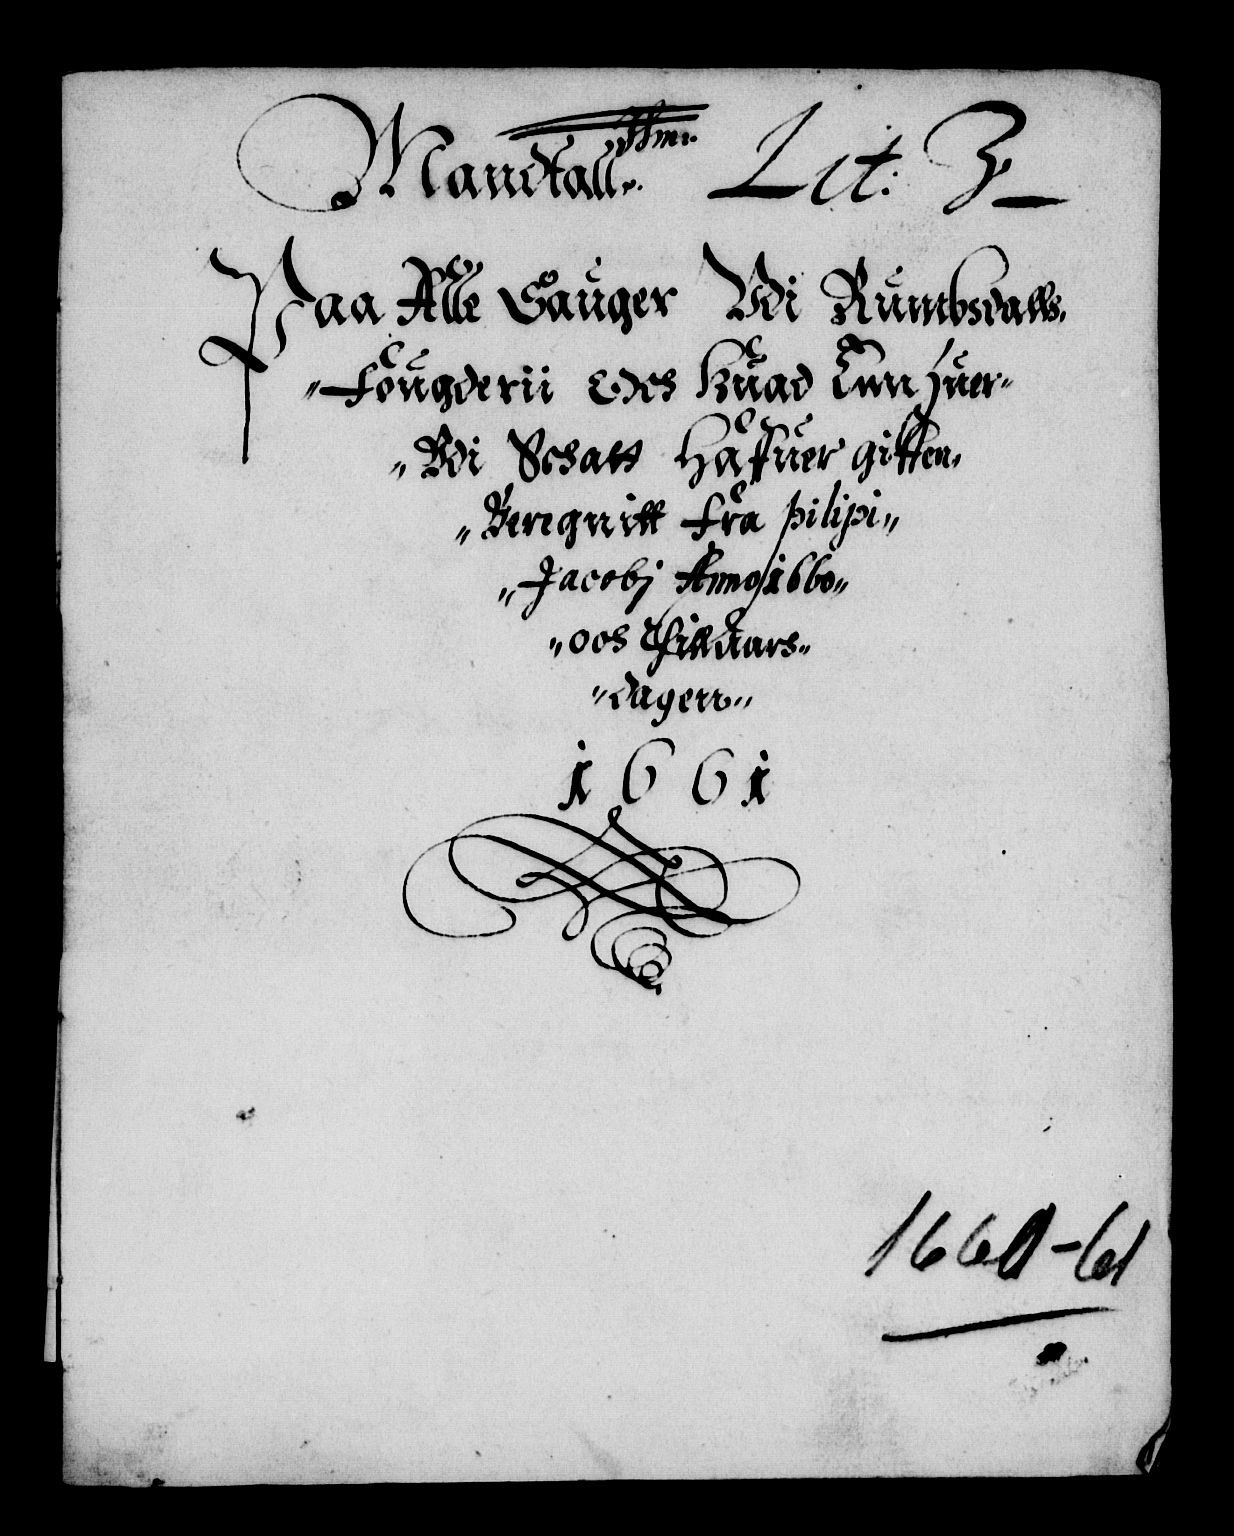 Mandtall Lit: Z
Paa Alle Gauger Vdi Rumbsdalls
Fougderii Och huad Enn huer
Vdi Schatt Haffuer giffuen
Beregnitt fra pilipi
Jacobj Anno 1660
och Till aars
dagenn
1661
1660-61